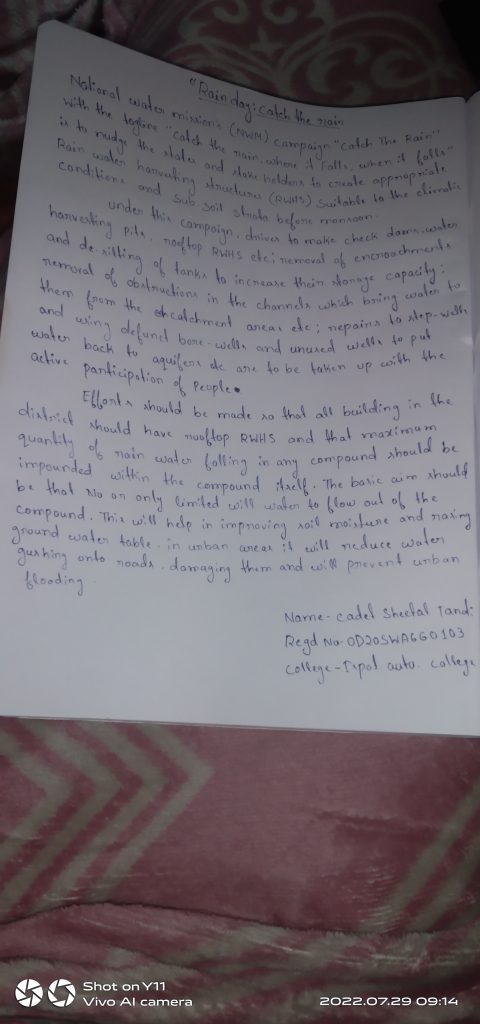 "Rain day: catch the rain
National water mission's (NWM) campaign "catch The Rain"
with the tagline "catch the rain, where it falls, when it falls"
is to nudge the states and stake holders to create appropriate
Rain water harvesting structures (RWHS) suitable to the climatic
conditions and sub-soil strata before monsoon.
under this campaign, drives to make check dams, water
harvesting pits, rooftop RWHS etc; removal of encroachments
and de-silting of tanks to increase their storage capacity;
removal of obstructions in the channels which bring water to
them from the catchment areas etc; repairs to step-wells
and using defunct bore-wells and unused wells to put
water back to aquifers etc are to be taken up with the
active participation of people.
Efforts should be made so that all building in the
district should have rooftop RWHS and that maximum
quantity of rain water falling in any compound should be
impounded within the compound itself. The basic aim should
be that No or only limited will water to flow out of the
compound. This will help in improving soil moisture and rasing
ground water table. in urban areas it will reduce water
gushing onto roads, damaging them and will prevent urban
flooding.
Name- cadet Sheetal Tandi
Regd No- OD20SWA660103
college- auto. college
Shot on Y11
Vivo AI camera
2022.07.29 09:14